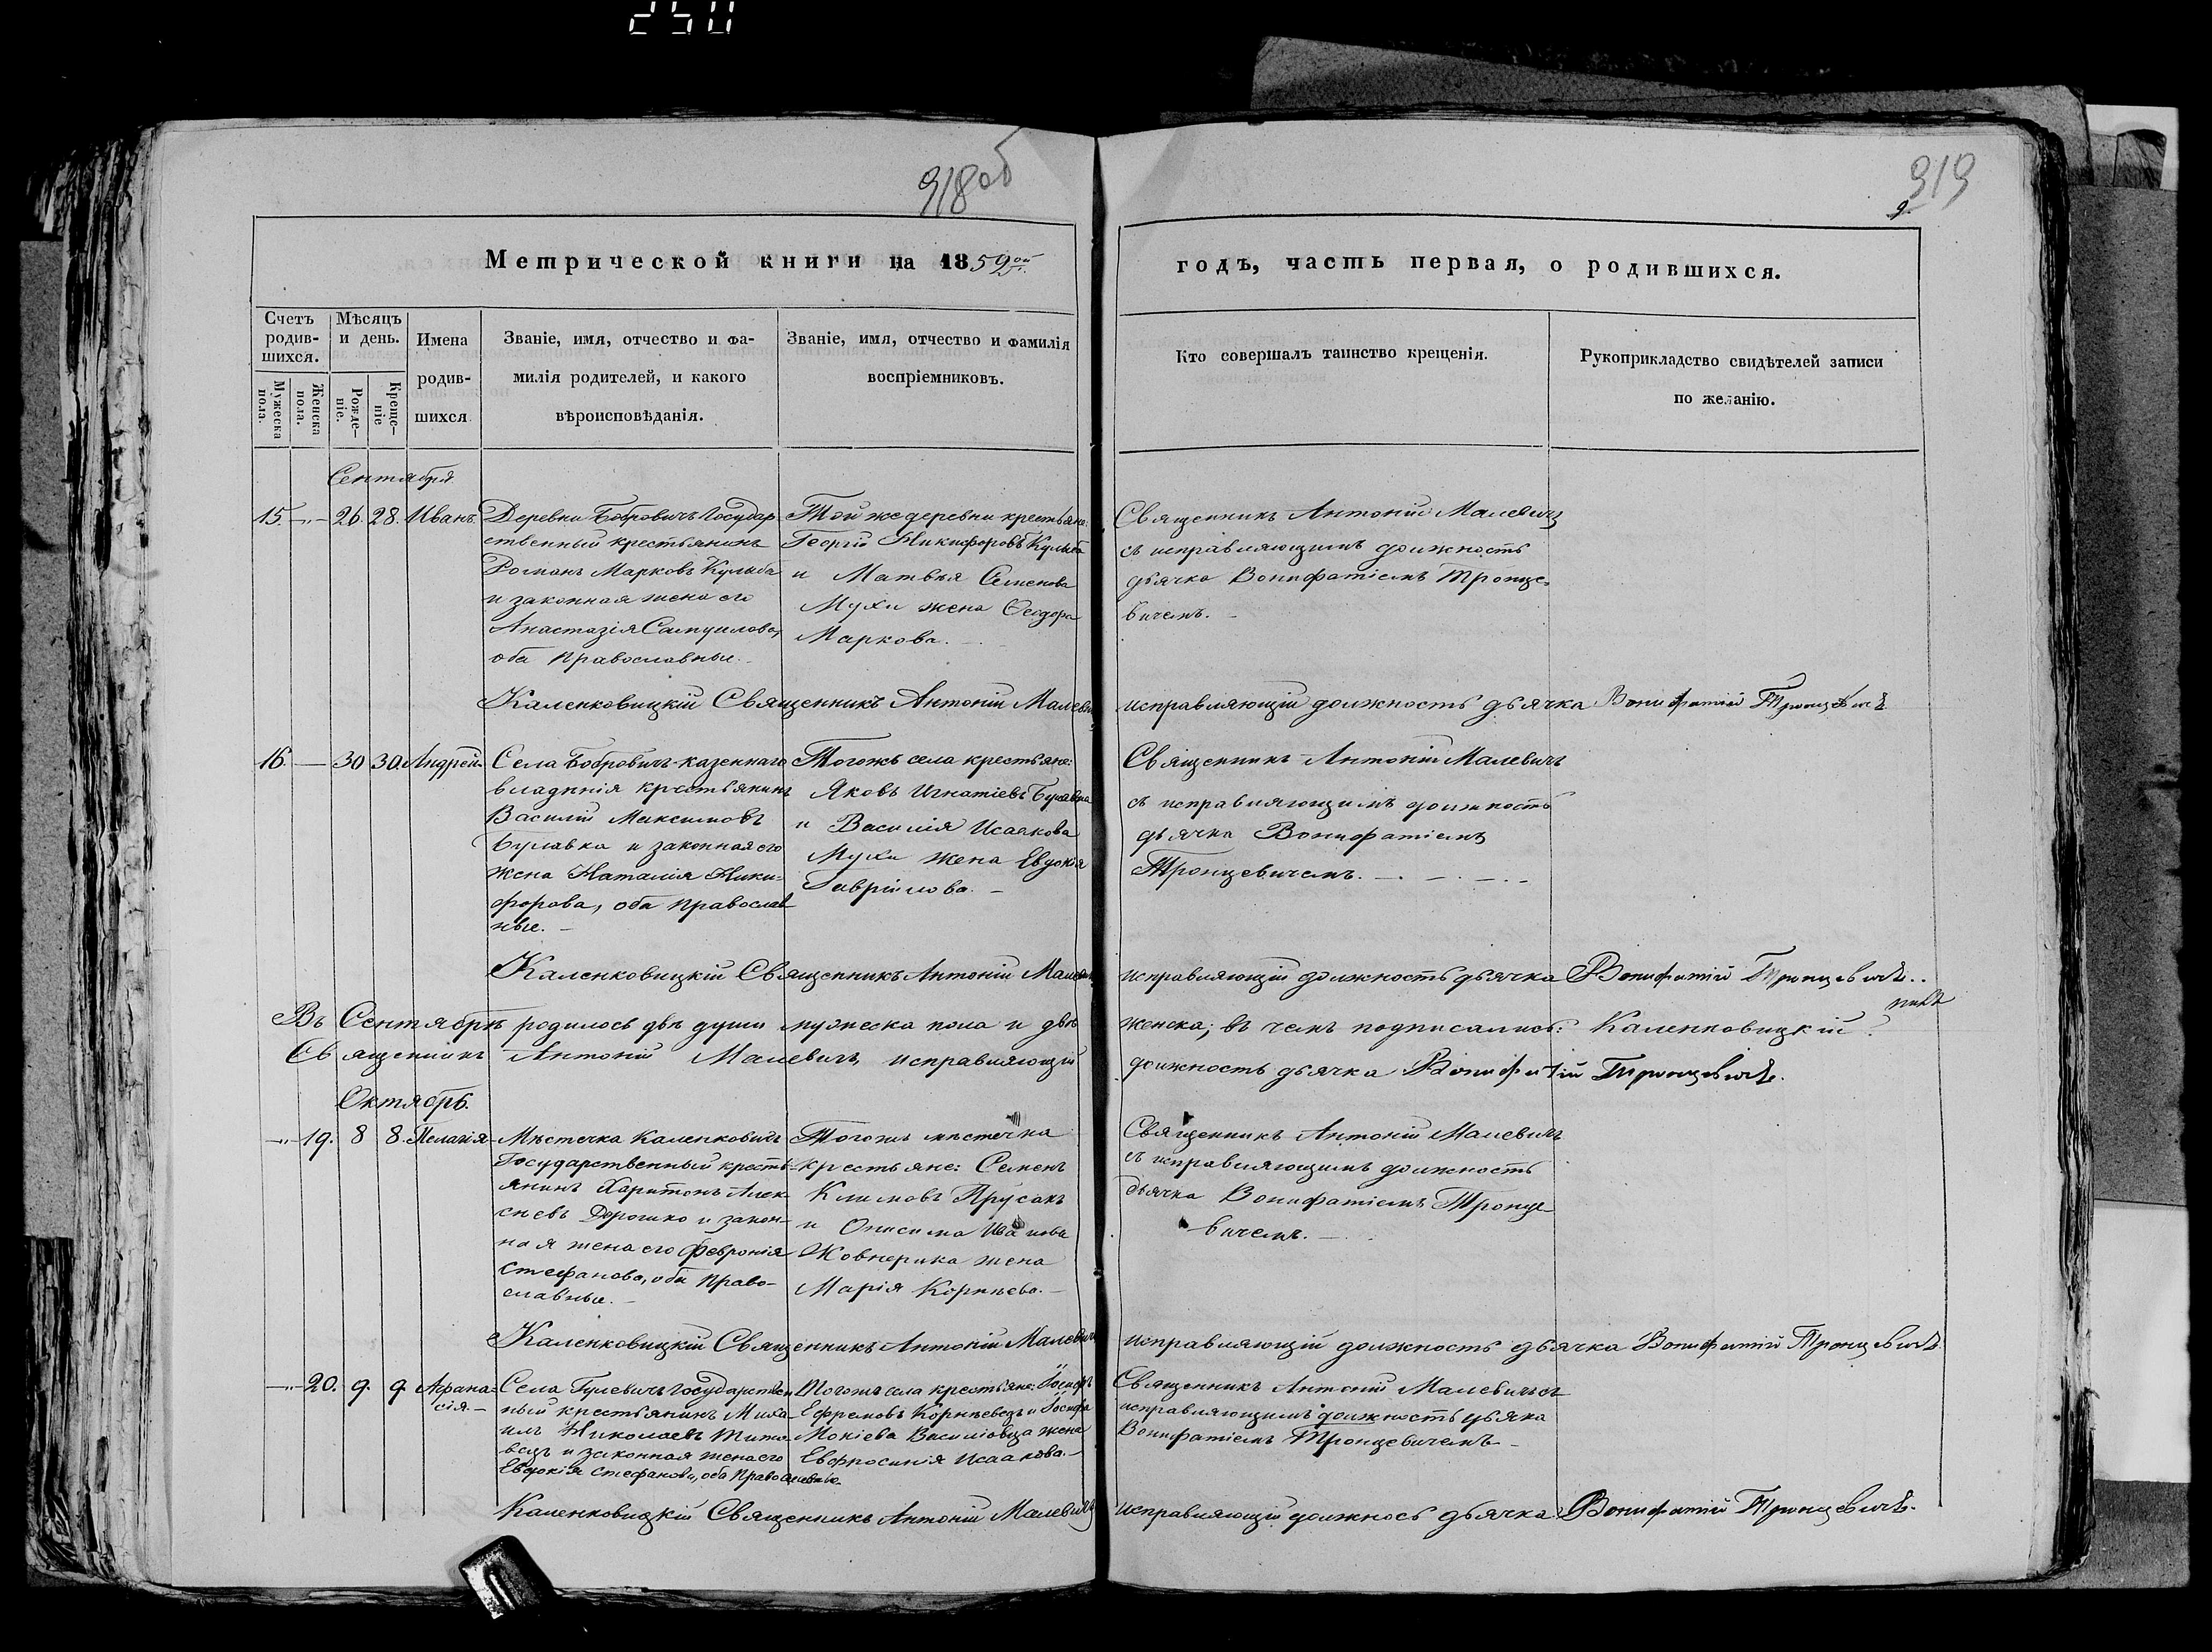 250
918об
919
9.
Метрической книги на 1859ой
годъ, часть первая, о родившихся.
Счетъ родив-шихся.
Мужеска пола.
Женска пола.
Мѣсяцъ и день.
Рожде-ніе.
Креще-ніе
Имена
родив-
шихся
Званіе, имя, отчество и фа-
милія родителей, и какого
вѣроисповѣданія.
Званіе, имя, отчество и фамилія
воспріемниковъ.
Кто совершалъ таинство крещенія.
Рукоприкладство свидѣтелей записи
по желанію.
Сентября
15. —„— 26. 28. Иванъ.
Деревни Бобровичъ Государ
ственный крестьянинъ
Романъ Марковъ Кулыба
и законная жена его
Анастазія Самуилова,
оба Православные.
Той же деревни крестьяне:
Георгій Никифоровъ Кулыба
и Матвѣя Семенова
Мухи жена Ѳеодора
Маркова.
Священникъ Антоній Малевичъ
съ исправляющимъ должность
дьячка Вонифатіемъ Тронце-
вичемъ.
Каленковицкій Священникъ Антоній Малевичъ
исправляющій должность дьячка Вонифатій Тронцевичъ
16. — 30 30. Андрей.
Села Бобровичъ-казеннаго
владѣнія крестьянинъ
Василій Максимовъ
Булавка и законная его
жена Наталія Ники-
форова, оба Православ
ные.
Тогожъ села крестьяне:
Яковъ Игнатіевъ Булавка
и Василія Исаакова
Мухи жена Евдокія
Гавріилова.
Священникъ Антоній Малевичъ
съ исправляющимъ должность
дьячка Вонифатіемъ
Тронцевичемъ.
Каленковицкій Священникъ Антоній Малевичъ
исправляющій должность дьячка Вонифатій Тронцевичъ..
Въ Сентябрѣ родилось двѣ души мужеска пола и двѣ
женска; въ чемъ подписались: Каленковицкій
Священникъ Антоній Малевичъ, исправляющій
должность дьячка Вонифатій Тронцевичъ.
Октябрь.
—„— 19. 8 8. Пелагія
Мѣстечка Каленковичъ
Государственный кресть-
янинъ Харитонъ Алек
сѣевъ Дорошко и закон-
ная жена его Февронія
Стефанова, оба Право-
славные.
Тогожъ мѣстечка
крестьяне: Семенъ
Климовъ Прусакъ
и Онисима Иванова
Ковнерика жена
Марія Корнѣева.
Священникъ Антоній Малевичъ
съ исправляющимъ должность
дьячка Вонифатіемъ Тронце
вичемъ.
Каленковицкій Священникъ Антоній Малевичъ
исправляющій должность дьячка Вонифатій Тронцевичъ
—„— 20. 9. 9. Афана-
сія.
Села Гулевичъ Государствен
ный крестьянинъ Миха-
илъ Николаевъ Тито-
вецъ и законная жена его
Евдокія Стефанова, оба Православные.
Тогожъ села крестьяне: Іосифъ
Ефремовъ Корнѣевецъ и Іосифа
Мокіева Василіовца жена
Евфросинія Исаакова.
Священникъ Антоній Малевичъ съ
исправляющимъ должность дьячка
Вонифатіемъ Тронцевичемъ
Каленковицкій Священникъ Антоній Малевичъ
исправляющій должнось дьячка Вонифатій Тронцевичъ.